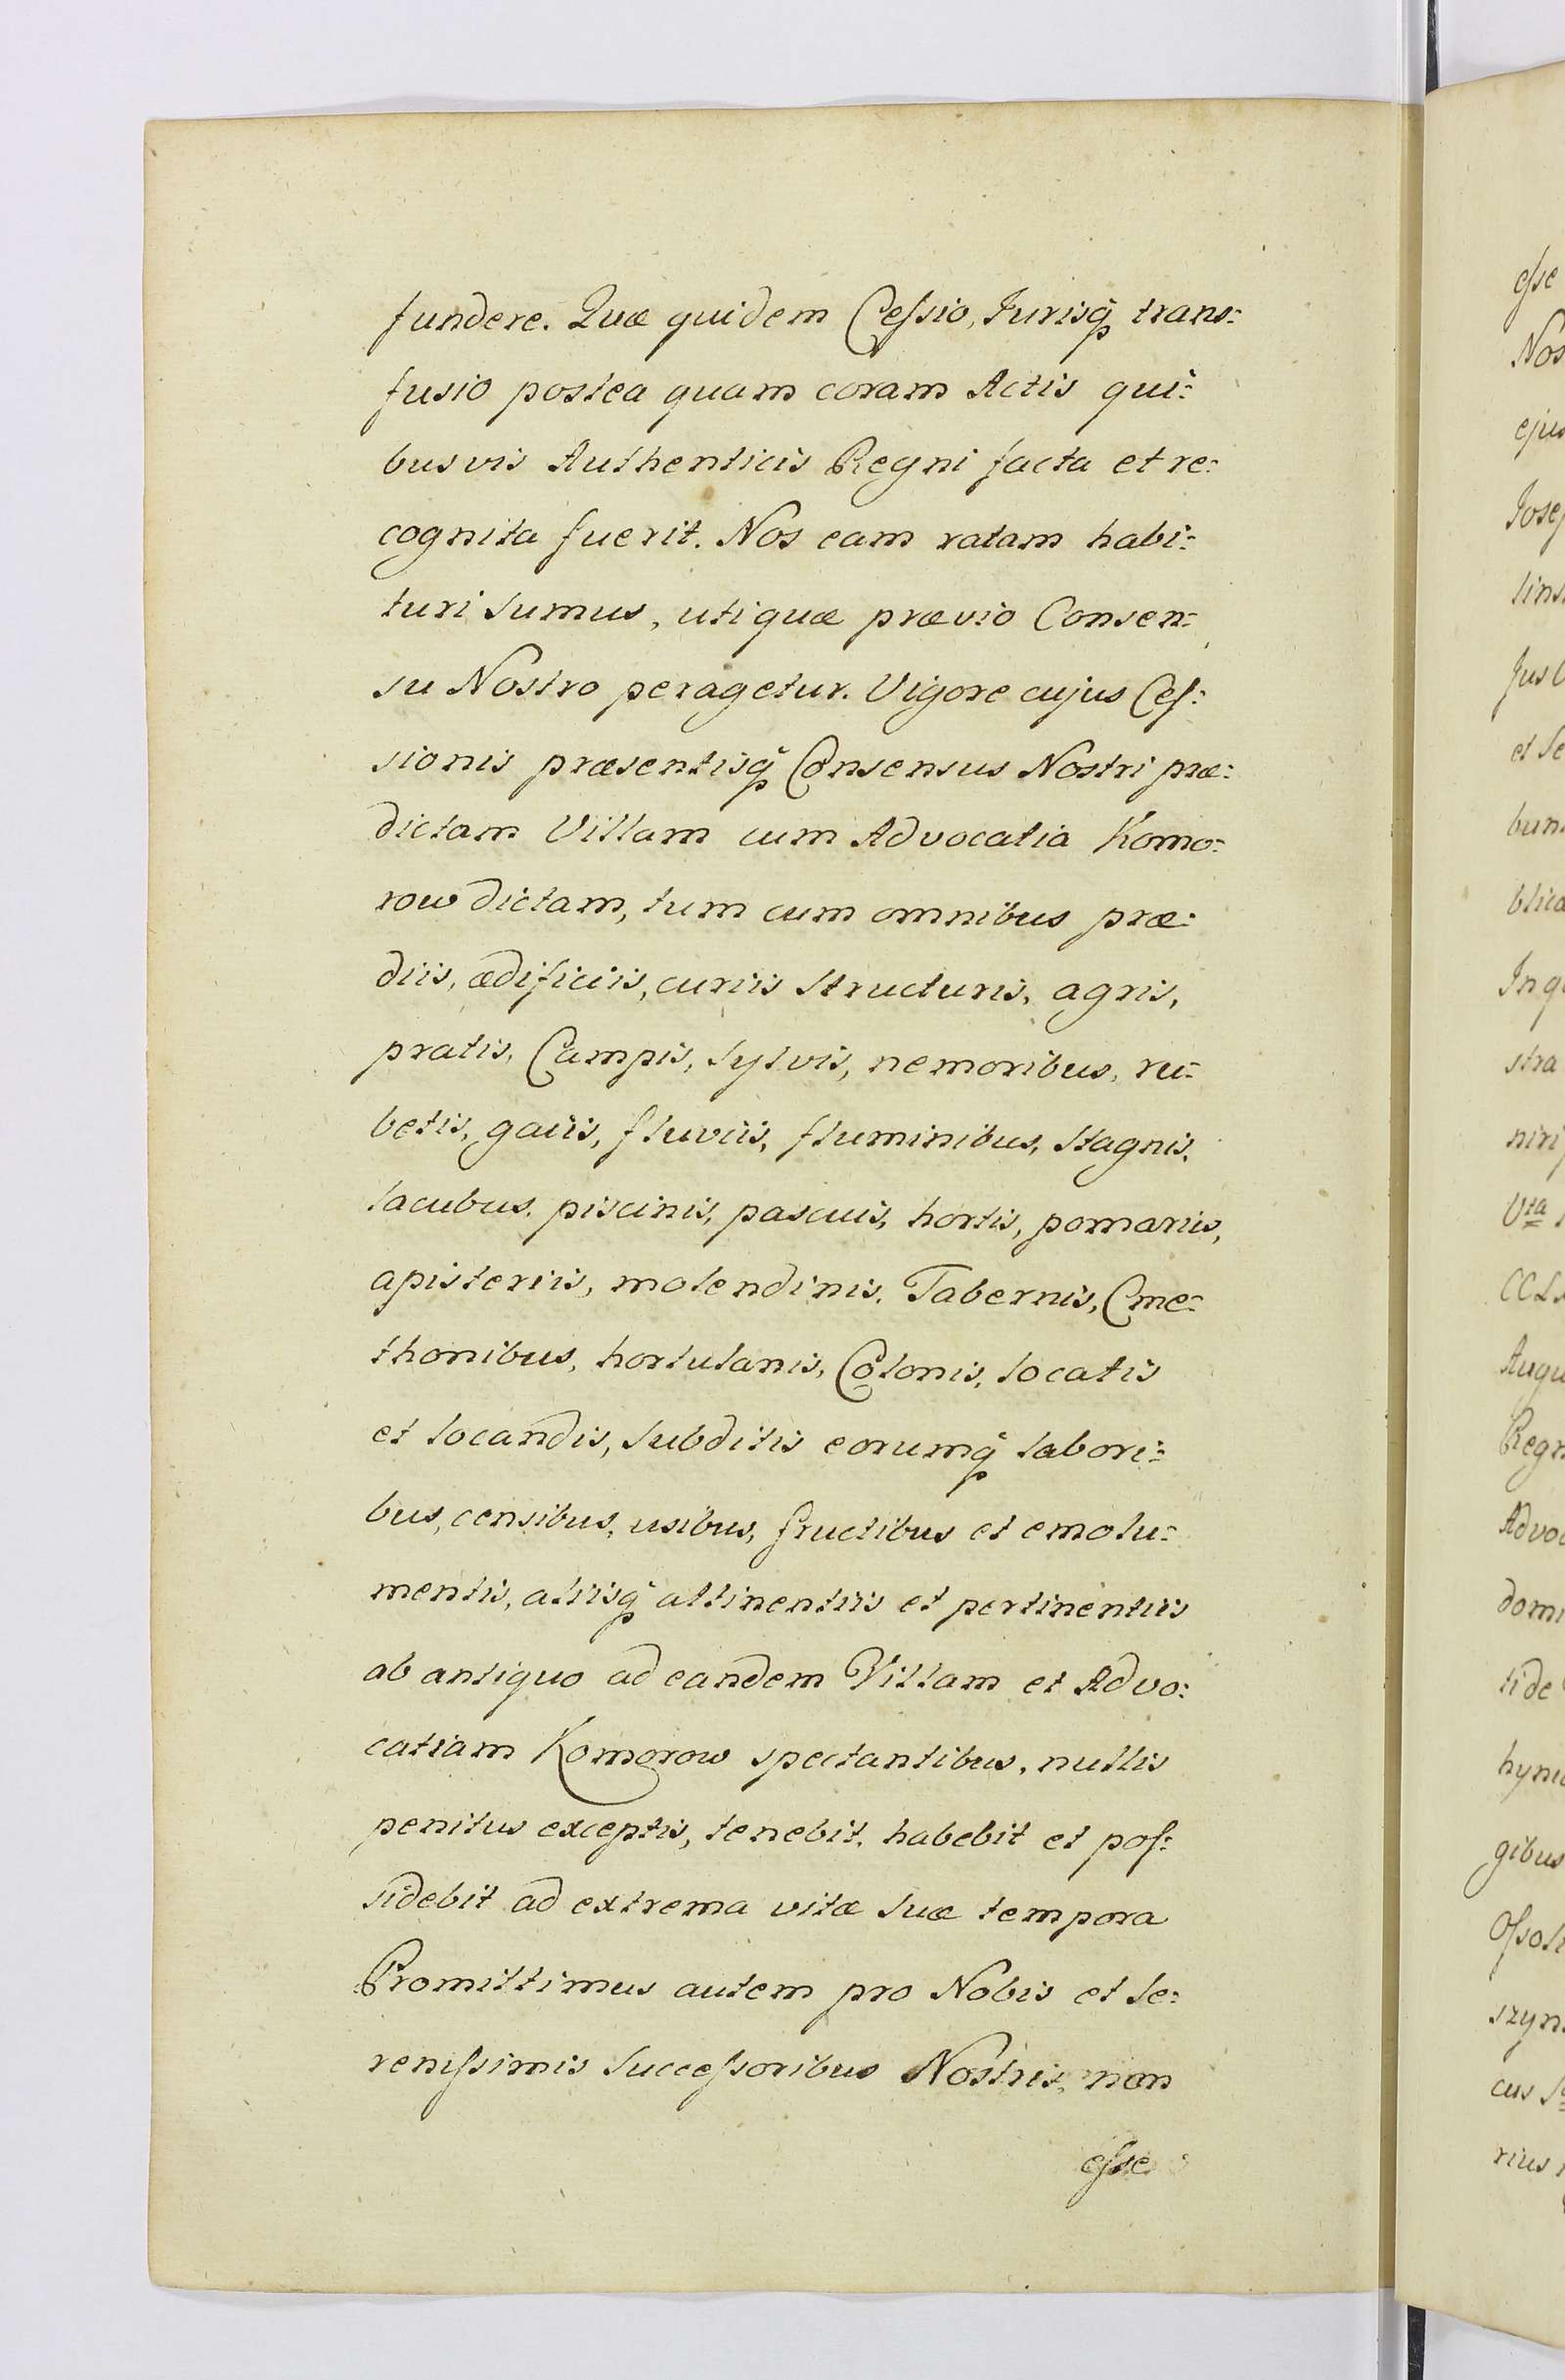 fundere. Quæ quidem Ceſsio, Jurisq̃ trans:
fusio postea quam coram Actis qui:
busvis Authenticis Regni facta et re:
cognita fuerit. Nos eam ratam habi:
turi sumus, uti quæ prævio Consen:
su Nostro peragetur. Vigore cujus Ceſ:
sionis præsentisq̃ Consensus Nostri præ:
dictam Villam cum Advocatia Komo:
row dictam, tum cum omnibus præ:
diis, ædificiis, curiis structuris, agris,
pratis, Campis, sylvis, nemoribus, ru:
betis, gaiis, fluviis, fluminibus, stagnis,
lacubus, piscinis, pascuis, hortis, pomariis,
apisteriis, molendinis, Tabernis, Cme:
thonibus, hortulanis, Colonis, locatis
et locandis, subditis eorumq̃ labori:
bus, censibus, usibus, fructibus et emolu:
mentis, aliisq̃ attinentiis et pertinentiis
ab antiquo ad eandem Villam et Advo:
catiam Komorow spectantibus, nullis
penitus exceptis, tenebit, habebit et poſ:
sidebit ad extrema vitæ suæ tempora
Promittimus autem pro Nobis et Se:
reniſsimis Succeſsoribus Nostris, non
eſse
eſse
Nos
ejus
Jose
tins
Jus
et Se
bun
blica
In q
stra
niri
Vta
CCL
Augu
Regn
Advo
domi
tide
hyni
gibus
Oſsol
szyn
cus
rius